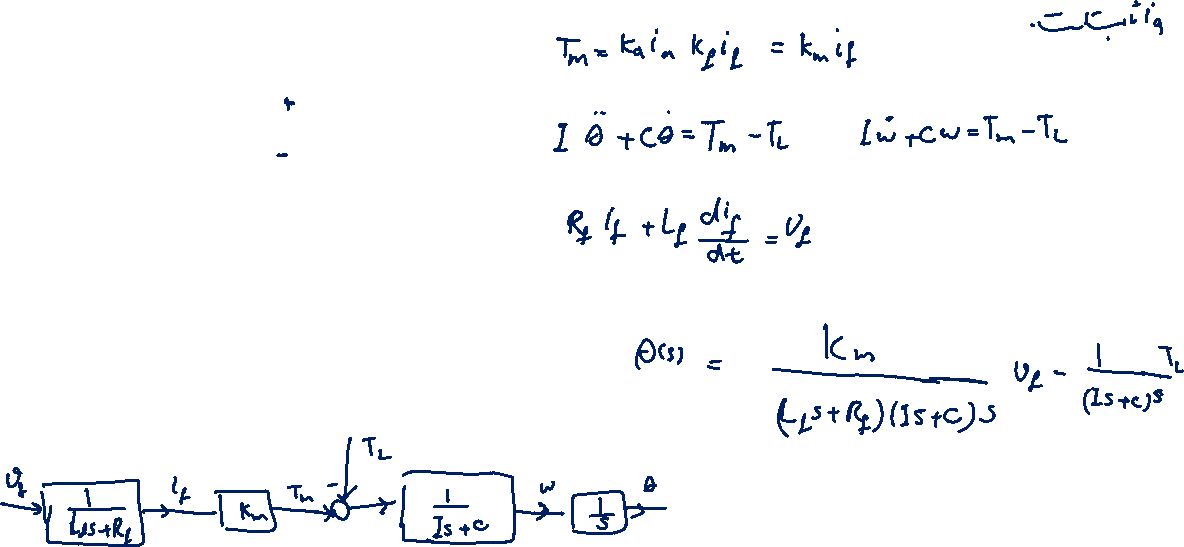 ثابت است. iₐ
Tₘ = kₐ iₐ k_f i_f = kₘ i_f
+
I θ̈ + cθ̇ = Tₘ - T_L    I ẇ + cw = Tₘ - T_L
-
R_f i_f + L_f di_f/dt = v_f
θ(s) = kₘ / ((L_f s + R_f)(Is + c)s) v_f - 1/((Is + c)s) T_L
T_L
v_f 1/(L_f s + R_f) i_f kₘ Tₘ - 1/(Is + c) w 1/s θ